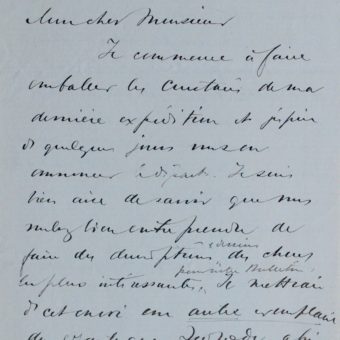 Mon cher Monsieur
Je commence à faire
emballer les crustacés de ma
dernière expédition et j'espère
d quelques jours vous en
commencer l'départ. Je suis
bien aise de savoir que vous
voulez bien entreprendre de
faire des descriptions des choses
pour notre Bulletin
les plus intéressantes, Je mettrai
d cet envoi un autre exemplaire
de